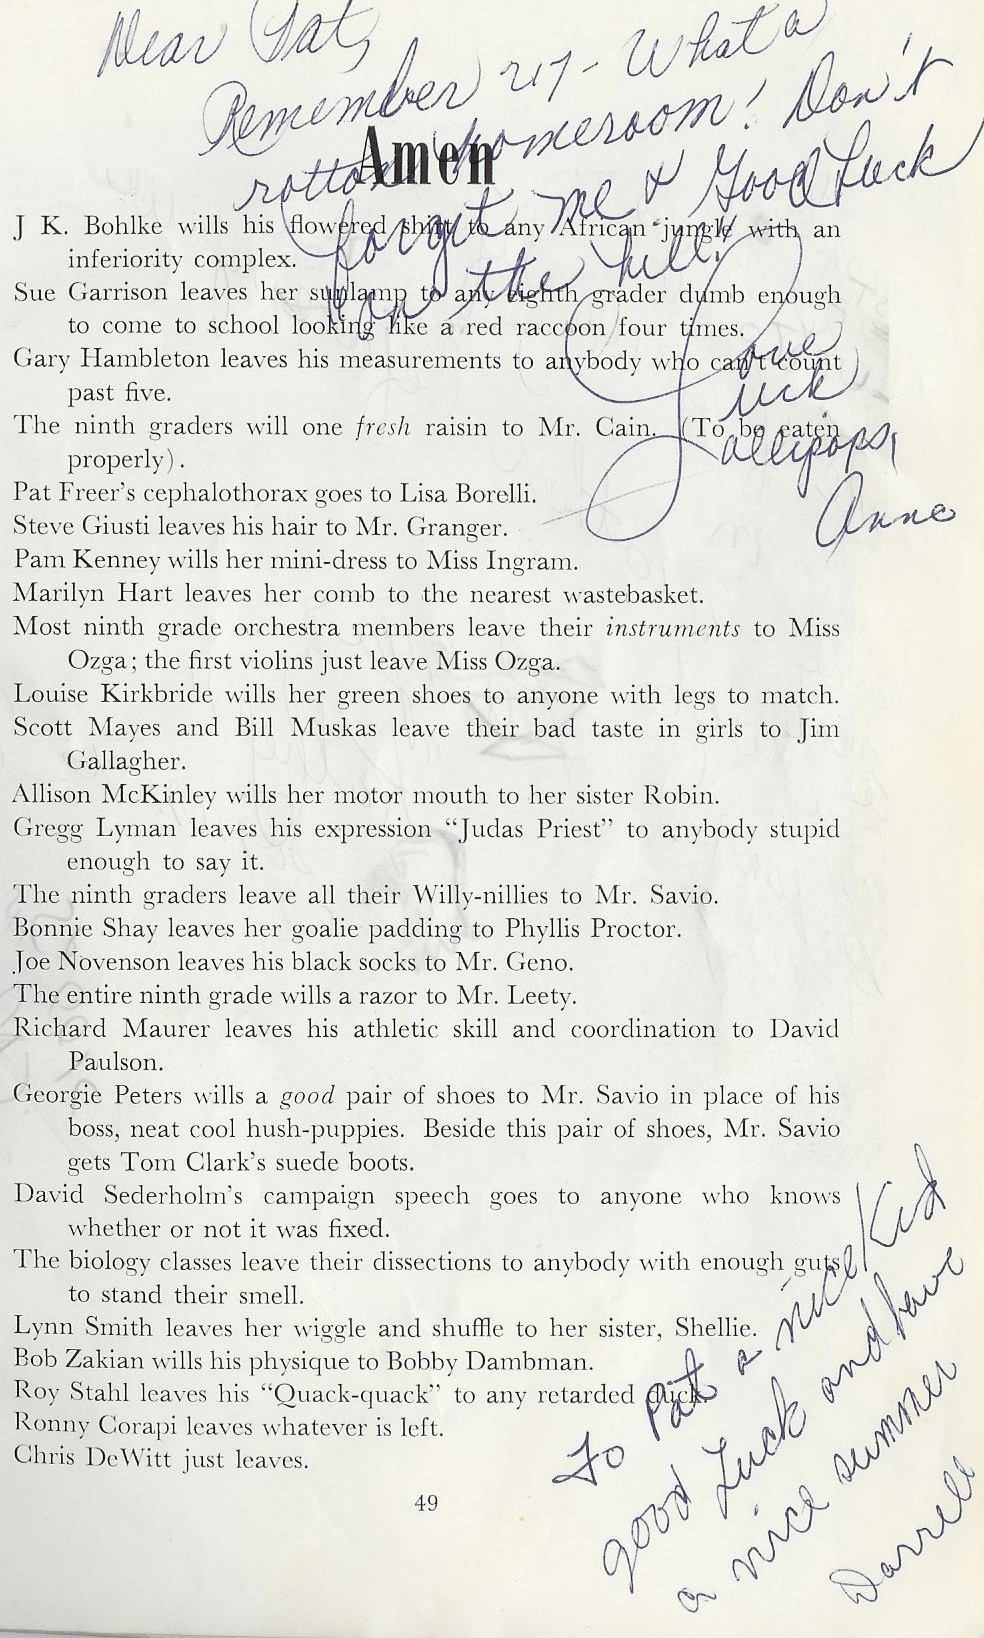 Dear Pat,
Remember 217 - What a
rotton homeroom! Don't
forget me & Good Luck
on the hill!
Love
uck
ollipops,
Anne
Amen
J K. Bohlke wills his flowered shirt to any African jungle with an
inferiority complex.
Sue Garrison leaves her sunlamp to any eighth grader dumb enough
to come to school looking like a red raccoon four times.
Gary Hambleton leaves his measurements to anybody who can't count
past five.
The ninth graders will one fresh raisin to Mr. Cain. (To be eaten
properly).
Pat Freer's cephalothorax goes to Lisa Borelli.
Steve Giusti leaves his hair to Mr. Granger.
Pam Kenney wills her mini-dress to Miss Ingram.
Marilyn Hart leaves her comb to the nearest wastebasket.
Most ninth grade orchestra members leave their instruments to Miss
Ozga; the first violins just leave Miss Ozga.
Louise Kirkbride wills her green shoes to anyone with legs to match.
Scott Mayes and Bill Muskas leave their bad taste in girls to Jim
Gallagher.
Allison McKinley wills her motor mouth to her sister Robin.
Gregg Lyman leaves his expression "Judas Priest" to anybody stupid
enough to say it.
The ninth graders leave all their Willy-nillies to Mr. Savio.
Bonnie Shay leaves her goalie padding to Phyllis Proctor.
Joe Novenson leaves his black socks to Mr. Geno.
The entire ninth grade wills a razor to Mr. Leety.
Richard Maurer leaves his athletic skill and coordination to David
Paulson.
Georgie Peters wills a good pair of shoes to Mr. Savio in place of his
boss, neat cool hush-puppies. Beside this pair of shoes, Mr. Savio
gets Tom Clark's suede boots.
David Sederholm's campaign speech goes to anyone who knows
whether or not it was fixed.
The biology classes leave their dissections to anybody with enough guts
to stand their smell.
Lynn Smith leaves her wiggle and shuffle to her sister, Shellie.
Bob Zakian wills his physique to Bobby Dambman.
Roy Stahl leaves his "Quack-quack" to any retarded duck.
Ronny Corapi leaves whatever is left.
Chris DeWitt just leaves.
49
To Pat a nice Kid
good Luck and have
a nice summer
Darrell